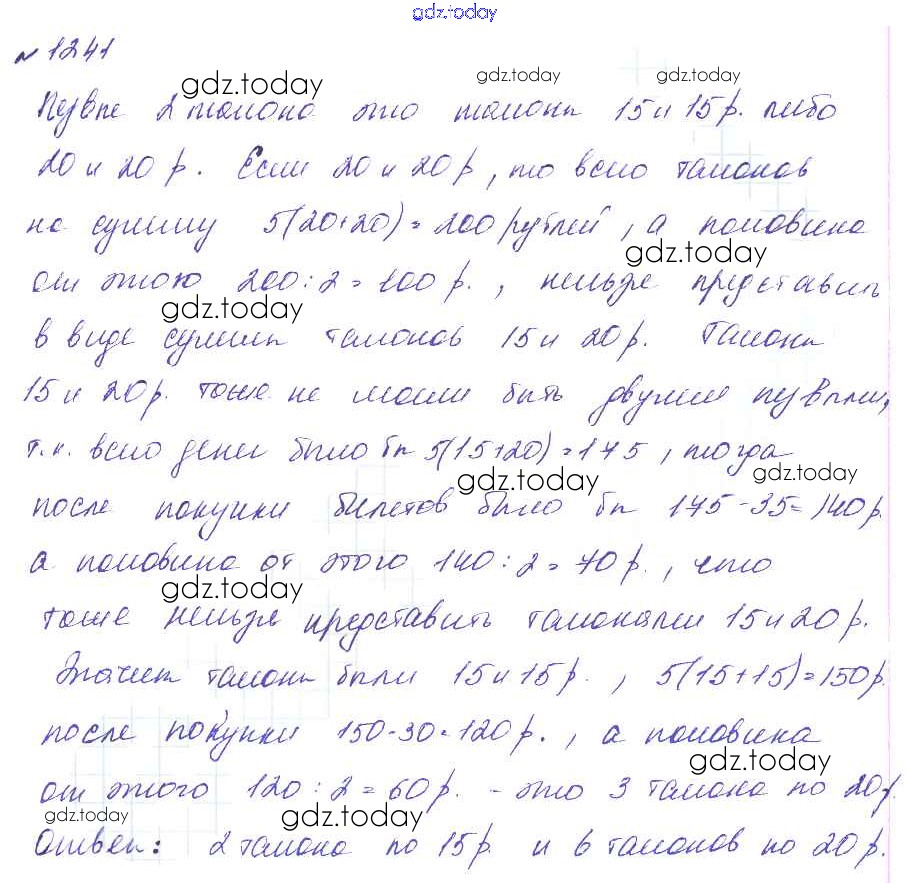 gdz.today
№ 1241
gdz.today gdz.today gdz.today
Первые 2 талона это талоны 15 и 15 р. либо
20 и 20 р. Если 20 и 20 р, то всего талонов
на сумму 5(20+20) = 200 рублей, а половина
gdz.today
от этого 200 : 2 = 100 р., нельзя представить
gdz.today
в виде суммы талонов 15 и 20 р. Талоны
15 и 20 р. тоже не могли быть двумя первыми,
т.к. всего денег было бы 5(15+20) = 175, тогда
gdz.today gdz.today
после покупки билетов было бы 175 - 35 = 140 р.
а половина от этого 140 : 2 = 70 р., что
gdz.today
тоже нельзя представить талонами 15 и 20 р.
Значит талоны были 15 и 15 р., 5(15+15) = 150 р.
после покупки 150 - 30 = 120 р., а половина
gdz.today
от этого 120 : 2 = 60 р. - это 3 талона по 20 р.
gdz.today gdz.today
Ответ: 2 талона по 15 р и 6 талонов по 20 р.